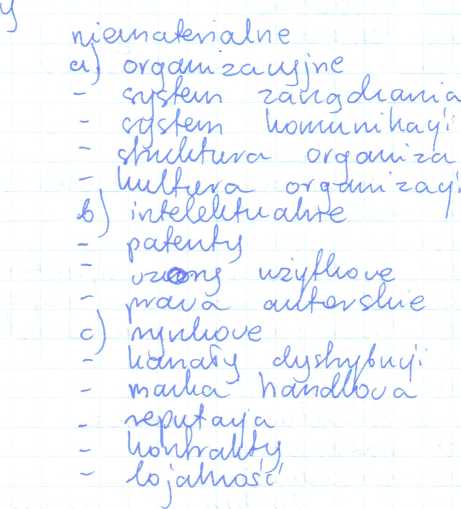 y
niematerialne
a) organizacyjne
- system zarządzania
- system komunikacji
- struktura organiza
- kultura organizacyj
b) intelektualne
- patenty
- wzory użytkowe
- prawa autorskie
c) rynkowe
- kanały dystrybucji
- marka handlowa
- reputacja
- kontrakty
- lojalność